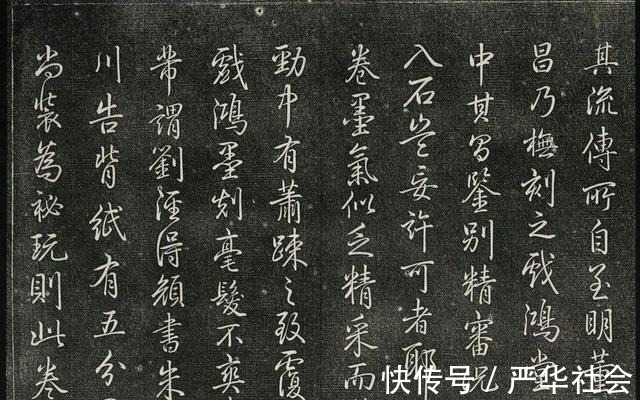 其流傳所自至明董
昌乃橅刻之戲鴻堂
中其昌鑒別精審況
入石豈妄許可者耶
卷墨氣似乏精采而
勁中有蕭疎之致覆
戲鴻墨刻毫髮不爽
芾謂劉涇得顏書朱
川告背紙有五分
尚裝為祕玩則此卷
快传号/严华社会